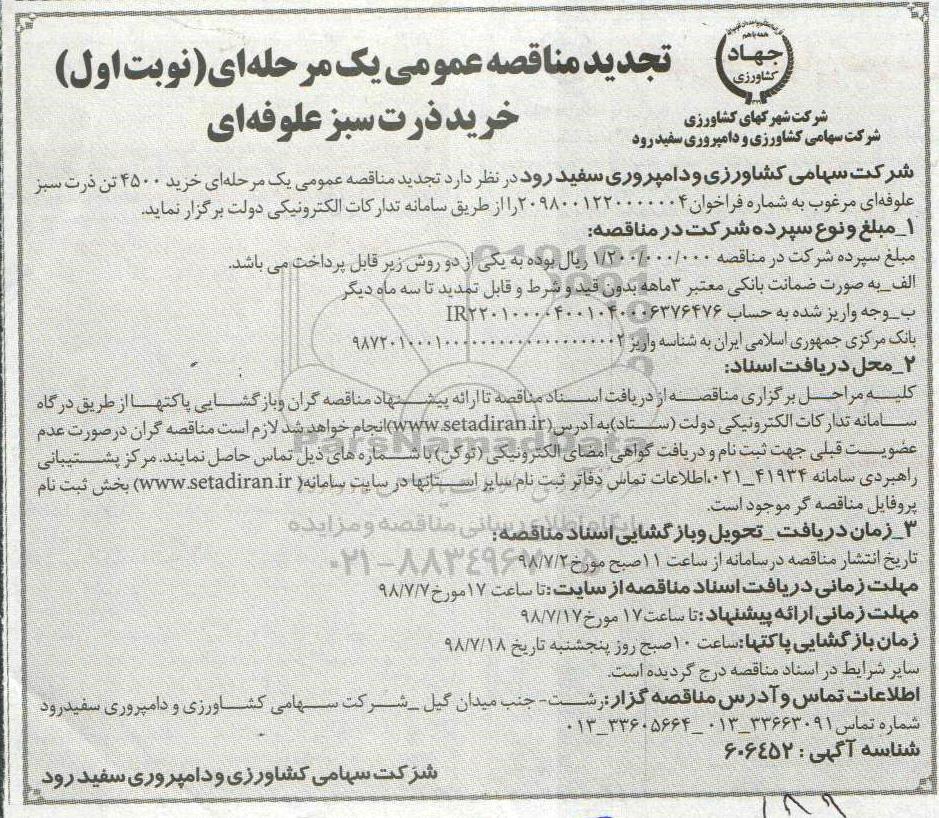 همه با هم
جهاد
کشاورزی
شرکت شهرکهای کشاورزی
شرکت سهامی کشاورزی و دامپروری سفیدرود
تجدید مناقصه عمومی یک مرحله‌ای (نوبت اول)
خرید ذرت سبز علوفه‌ای
شرکت سهامی کشاورزی و دامپروری سفید رود در نظر دارد تجدید مناقصه عمومی یک مرحله‌ای خرید ۴۵۰۰ تن ذرت سبز
علوفه‌ای مرغوب به شماره فراخوان ۲۰۹۸۰۰۱۲۲۰۰۰۰۰۰۴ را از طریق سامانه تدارکات الکترونیکی دولت برگزار نماید.
۱_مبلغ و نوع سپرده شرکت در مناقصه:
مبلغ سپرده شرکت در مناقصه ۱/۲۰۰/۰۰۰/۰۰۰ ریال بوده به یکی از دو روش زیر قابل پرداخت می باشد.
الف_به صورت ضمانت بانکی معتبر ۳ماهه بدون قید و شرط و قابل تمدید تا سه ماه دیگر
ب_وجه واریز شده به حساب IR۲۲۰۱۰۰۰۰۴۰۰۱۰۴۰۰۰۶۳۷۶۴۷۶
بانک مرکزی جمهوری اسلامی ایران به شناسه واریز
۲_محل دریافت اسناد:
کلیه مراحل برگزاری مناقصه از دریافت اسناد مناقصه تا ارائه پیشنهاد مناقصه گران وبازگشایی پاکتها از طریق درگاه
سامانه تدارکات الکترونیکی دولت (ستاد)به آدرس(www.setadiran.ir)انجام خواهد شد لازم است مناقصه گران درصورت عدم
عضویت قبلی جهت ثبت نام و دریافت گواهی امضای الکترونیکی (توکن) با شماره های ذیل تماس حاصل نمایند. مرکز پشتیبانی
راهبردی سامانه ۴۱۹۳۴_۰۲۱،اطلاعات تماس دفاتر ثبت نام سایر استانها در سایت سامانه( www.setadiran.ir) بخش ثبت نام
پروفایل مناقصه گر موجود است.
۳_زمان دریافت _تحویل وبازگشایی اسناد مناقصه:
تاریخ انتشار مناقصه درسامانه از ساعت ۱۱صبح مورخ۹۸/۷/۲
مهلت زمانی دریافت اسناد مناقصه از سایت:تا ساعت ۱۷مورخ۹۸/۷/۷
مهلت زمانی ارائه پیشنهاد:تا ساعت۱۷ مورخ۹۸/۷/۱۷
زمان بازگشایی پاکتها:ساعت ۱۰صبح روز پنجشنبه تاریخ ۹۸/۷/۱۸
سایر شرایط در اسناد مناقصه درج گردیده است.
اطلاعات تماس و آدرس مناقصه گزار:رشت- جنب میدان گیل _شرکت سهامی کشاورزی و دامپروری سفیدرود
شماره تماس۳۳۶۶۳۰۹۱_۰۱۳ _۳۳۶۰۵۶۶۴_۰۱۳
شناسه آگهی : ۶۰۶۴۵۲
شرکت سهامی کشاورزی و دامپروری سفید رود
ParsNamadData
پایگاه اطلاع رسانی مناقصه و مزایده
۰۲۱-۸۸۳۴۹۶۷۰-۵